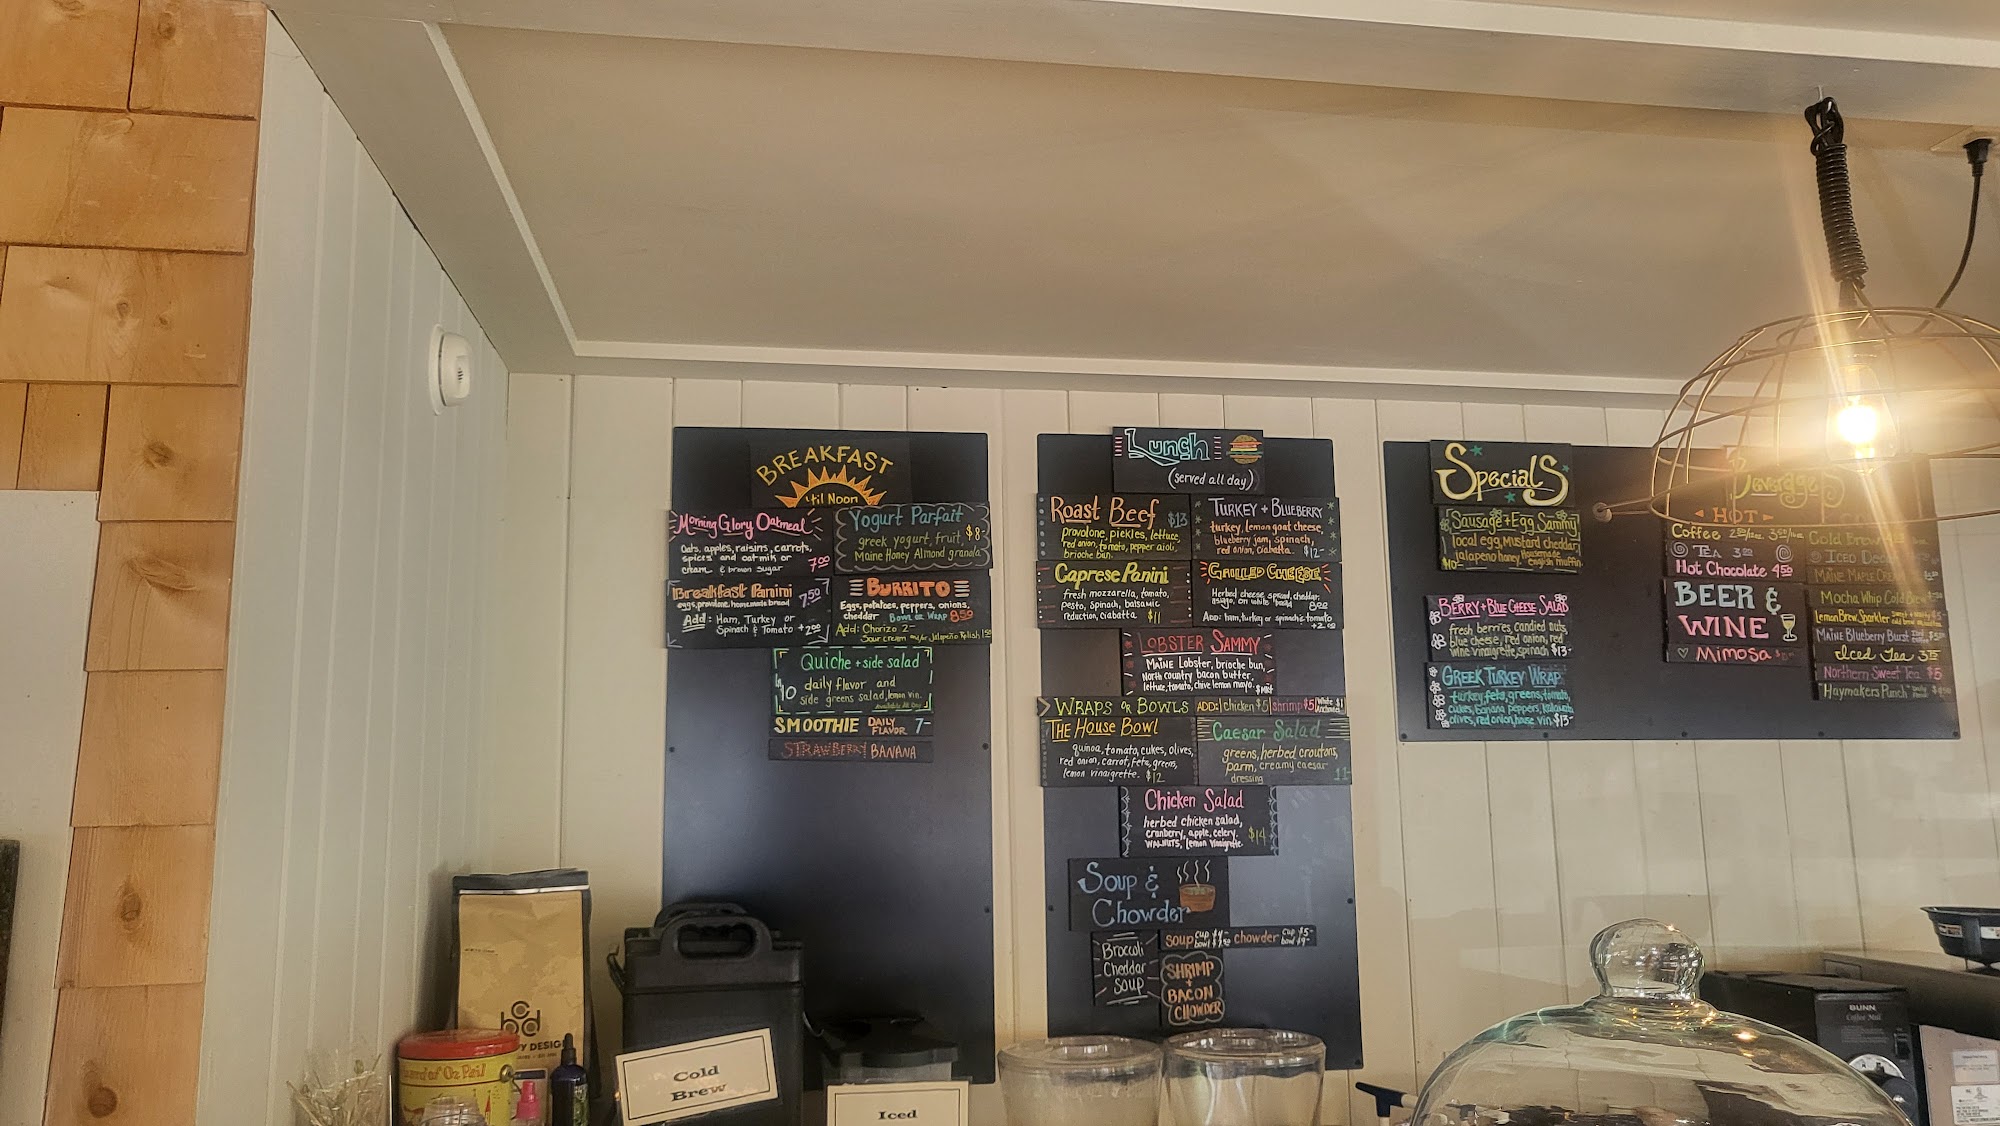 BREAKFAST
'til Noon
Morning Glory Oatmeal
Oats, apples, raisins, carrots,
spices and oat milk or
cream & brown sugar 7.00
Yogurt Parfait
greek yogurt, fruit, $8-
Maine Honey Almond granola
Breakfast Panini
eggs, provolone, homemade bread 7.50
Add: Ham, Turkey or
Spinach & Tomato +2.00
BURRITO
Eggs, potatoes, peppers, onions,
cheddar BOWL OR WRAP 8.50
Add: Chorizo 2-
Sour cream w/or Jalapeño Relish 1.50
Quiche + side salad
10 daily flavor and
side greens salad, lemon vin.
Available All Day
SMOOTHIE DAILY FLAVOR 7-
STRAWBERRY BANANA
Lunch
(served all day)
Roast Beef $13
provolone, pickles, lettuce,
red onion, tomato, pepper aioli,
brioche bun.
TURKEY + BLUEBERRY
turkey, lemon goat cheese,
blueberry jam, spinach,
red onion, ciabatta. $12-
Caprese Panini
fresh mozzarella, tomato,
pesto, spinach, balsamic
reduction, ciabatta $11
GRILLED CHEESE
Herbed cheese spread, cheddar,
asiago, on white bread 8.00
ADD: ham, turkey or spinach & tomato
+2.00
LOBSTER SAMMY
MAINE Lobster, brioche bun,
North country bacon butter,
lettuce, tomato, chive lemon mayo. $Mkt
WRAPS OR BOWLS ADD: chicken $5 shrimp $5
THE HOUSE BOWL
quinoa, tomato, cukes, olives,
red onion, carrot, feta, greens,
lemon vinaigrette. $12
Caesar Salad
greens, herbed croutons,
parm, creamy caesar
dressing 11-
Chicken Salad
herbed chicken salad,
cranberry, apple, celery,
WALNUTS, lemon vinaigrette. $14
Soup &
Chowder
soup cup $4- bowl chowder cup $5- bowl $9-
Broccoli
Cheddar
Soup
SHRIMP
+
BACON
CHOWDER
Specials
Sausage + Egg Sammy
local egg, mustard cheddar,
jalapeno honey, Housemade
$10- english muffin
BERRY + BLUE CHEESE SALAD
fresh berries, candied nuts,
blue cheese, red onion, red
wine vinaigrette, spinach $13-
GREEK TURKEY WRAP
turkey, feta, greens, tomato,
cukes, banana peppers, kalamata
olives, red onion, house vin. $13-
Beverages
HOT
Coffee
TEA 3.00
Hot Chocolate 4.50
BEER &
WINE
Mimosa
Cold Brew
ICED
MAINE MAPLE
Mocha Whip Cold Brew
Lemon Brew Sparkler
MAINE Blueberry Burst
Iced Tea 3.75
Northern Sweet Tea $5
Haymakers Punch
Cold
Brew
Iced
cbd
BUNN
Coffee Mill